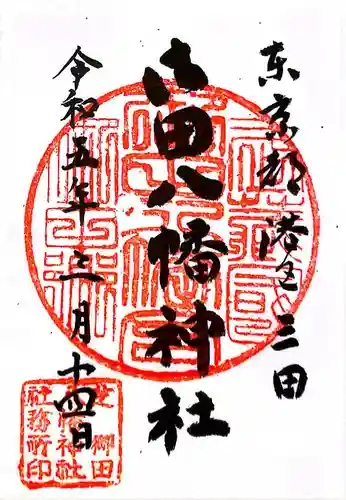 东京都港区三田
御田八幡神社
令和五年三月十四日
芝御田
八幡神社
社務所印